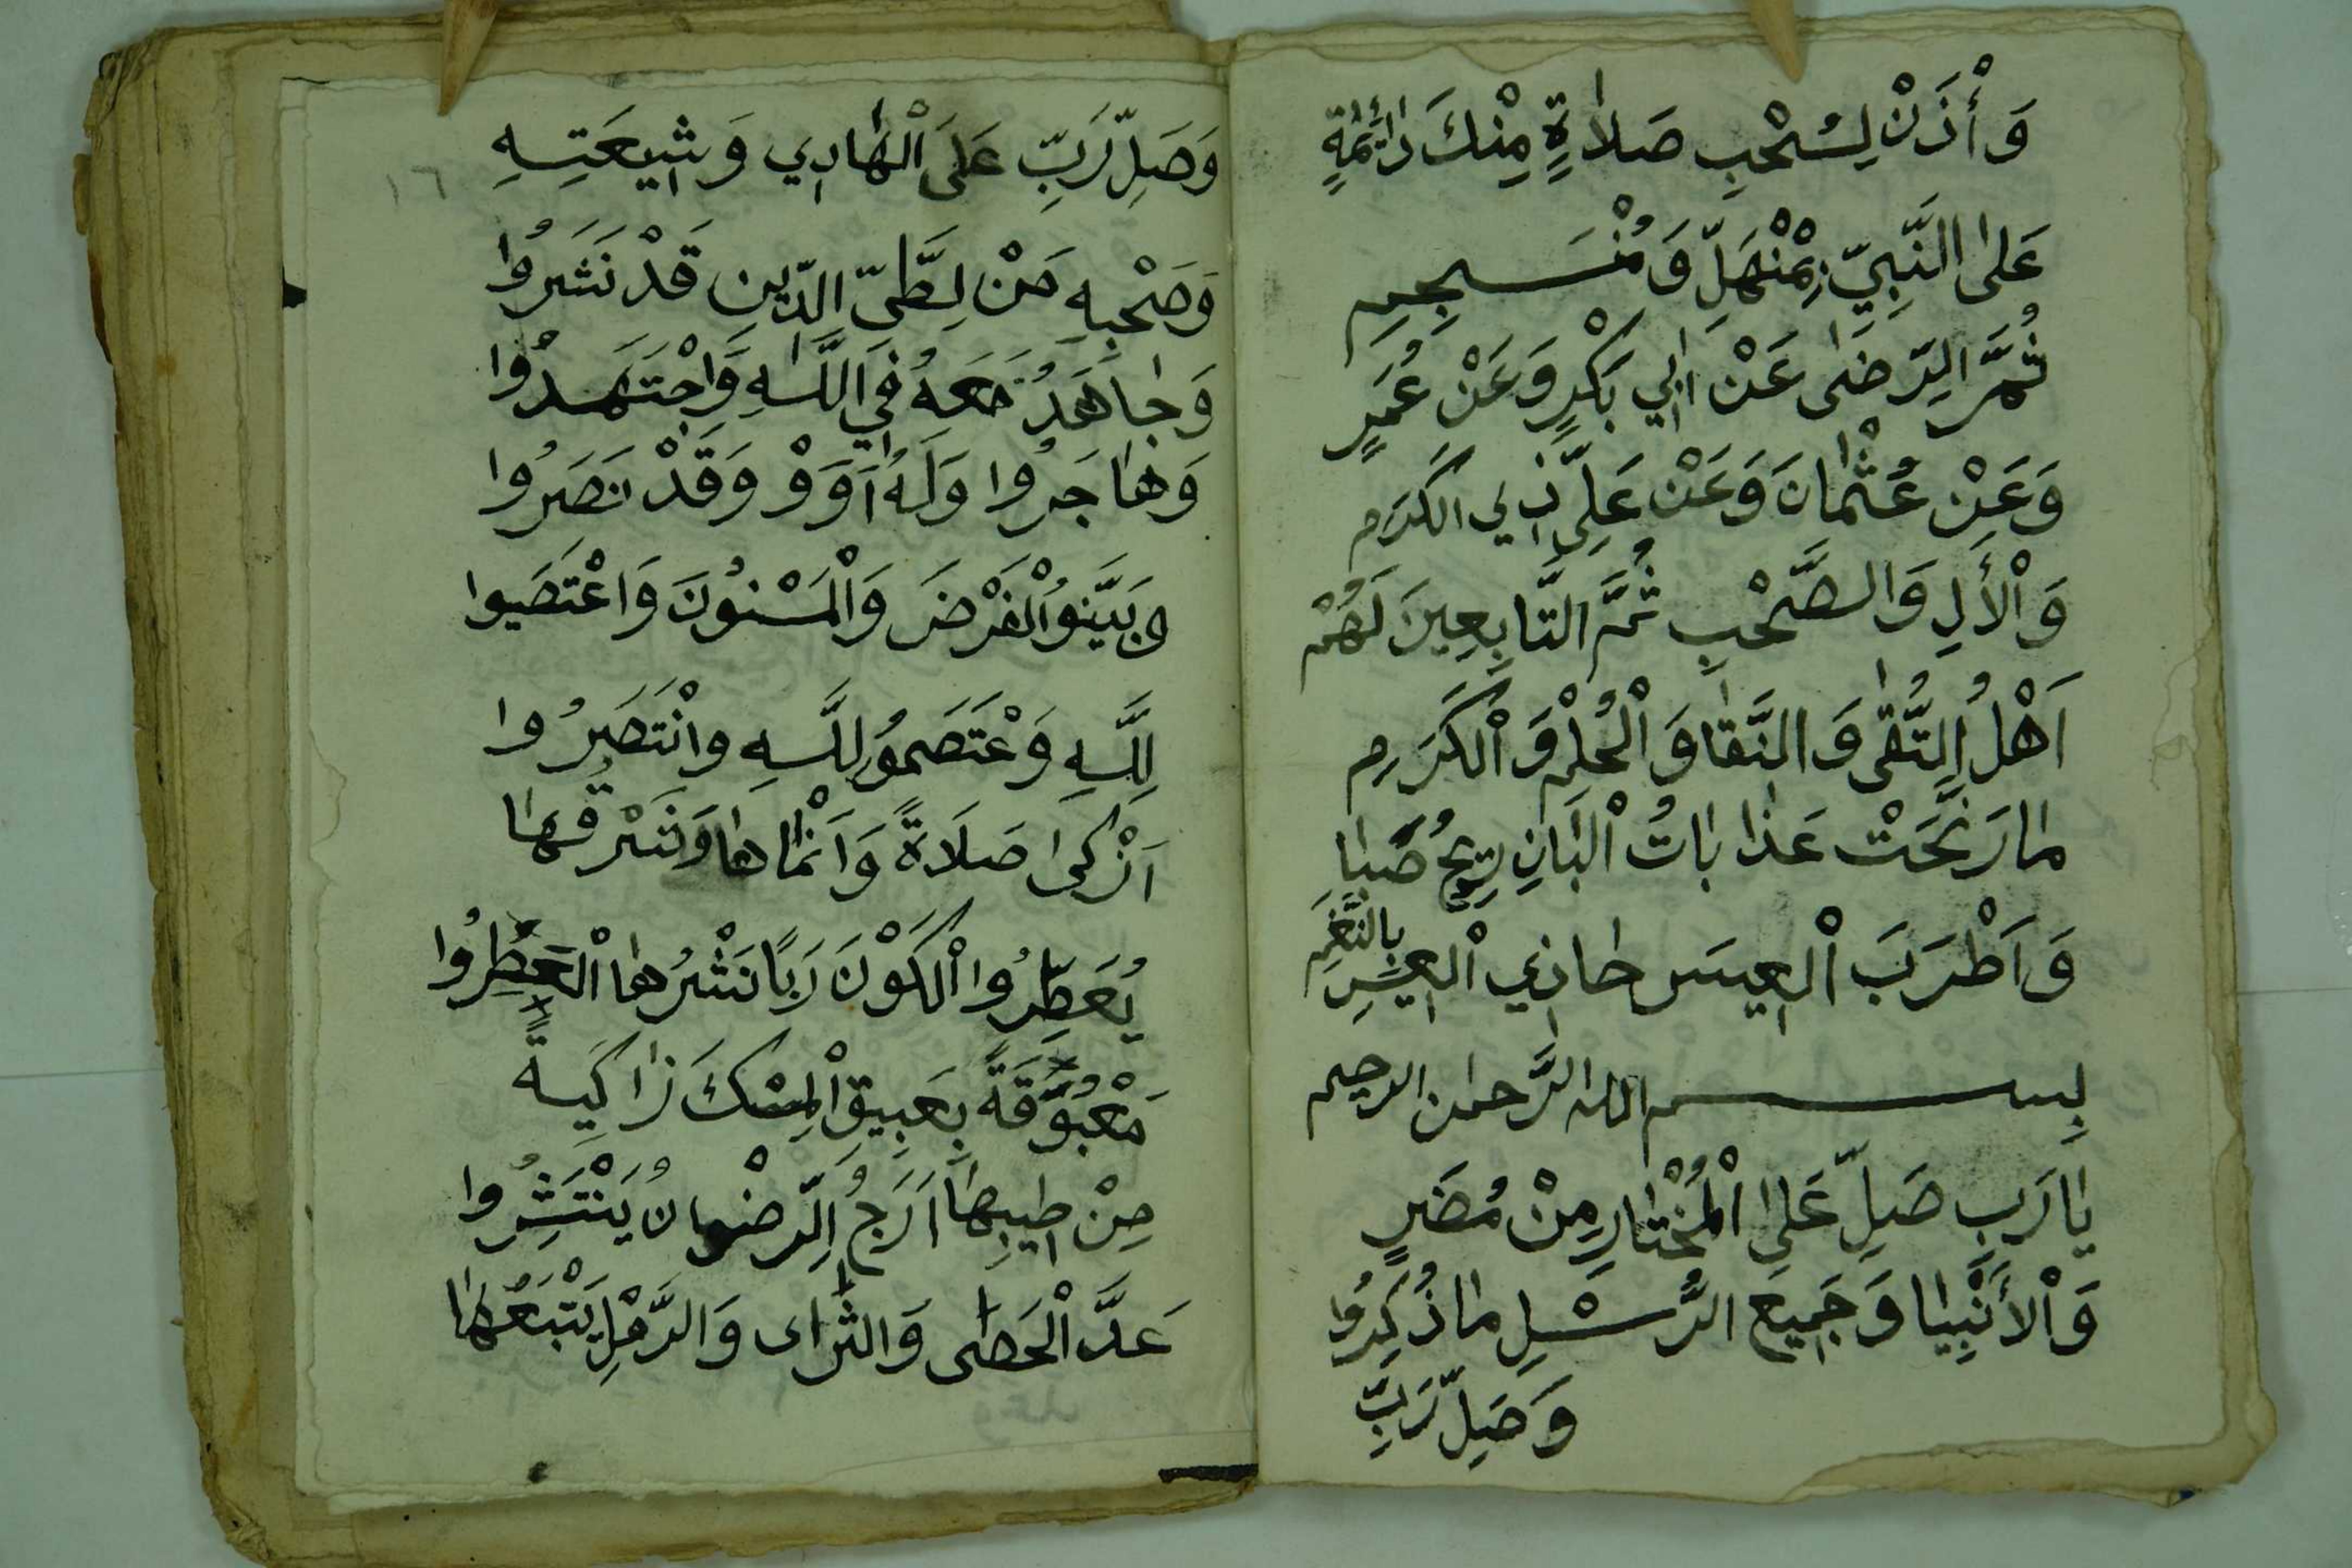 وَأْذَنْ لِسُحْبِ صَلَاةٍ مِنْكَ دَائِمَةٍ
عَلَى النَّبِيِّ بِمُنْهَلٍّ وَمُنْسَجِمِ
ثُمَّ الرِّضَى عَنْ ابِي بَكْرٍ وَعَنْ عُمَرٍ
وَعَنْ عُثْمَانَ وَعَنْ عَلِيِّ ذِي الكَرَمِ
وَالْأَلِ وَالصَّحْبِ ثُمَّ التَّابِعِينَ لَهُمْ
اَهْلُ التُّقَى وَالنَّقَا وَالْحُلْمِ وَالْكَرَمِ
مَا رَنَّحَتْ عَذَابَاتُ الْبَانِ رِيحُ صَبَا
وَاَطْرَبَ الْعِيسَ حَاذِي الْعِيسِ بِالنَّغَمِ
بِسم الله الرَّحمٰن الرحيم
يَا رَبِ صَلِّ عَلَى الْمُخْتَارِ مِنْ مُضَرٍ
وَالْأَنْبِيَا وَجَمِيعَ الرُّسْلِ مَا ذُكِرُوا
وَصَلِّ رَبِّ
١٦
وَصَلِّ رَبِّ عَلَى الْهَادِي وَشِيعَتِهِ
وَصَحْبِهِ مَنْ لِطَّيِّ الدِّينِ قَدْ نَشَرُوا
وَجَاهَدُ مَعَهُ فِي اللَّهِ وَاجْتَهَدُوا
وَهَاجَرُوا وَلَهُ اَوَوْ وَقَدْ نَصَرُوا
وبَيَّنُوا الْفَرْضَ وَالْمَسْنُونَ وَاعْتَصَبُوا
لِلَّهِ وَعْتَصَمُو لِلَّهِ وانْتَصَرُوا
اَزْكَى صَلَاةً وَاَنْمَاهَا وَشَرْفُهَا
يُعَطِّرُوا الْكَوْنَ رَبًا نَشْرُهَا الْعَطِرُوا
مَعْبُوقَةً بِعَبِيقِ الْمِسْكَ زَاكِيةً
مِنْ طِيبِهَا اَرَجُ الرِّضْوانُ يَنْتَشِرُوا
عَدَّ الْحَصَى وَالثَّرَاى وَالرَّمْلِ يَتْبَعُهَا